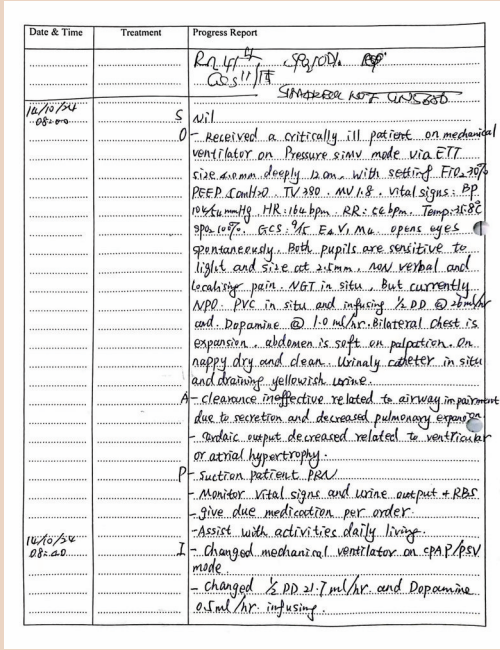 Date & Time Treatment Progress Report
SPO2 100%
GCS 11/15
14/10/24
08:00
S Nil
O - Received a critically ill patient on mechanical
ventilator on Pressure SIMV mode via ETT
size 4.0mm deeply 12cm, with setting FIO2 30%
PEEP 5cmH2O. TV 380. MV 1.8. Vital signs: BP
104/54mmHg HR: 164 bpm. RR: 54 bpm. Temp: 35.8°C
SPO2 100%. GCS: 9/15 E4 V1 M4. opens eyes
spontaneously. Both pupils are sensitive to
light and size at 2.5mm. non verbal and
localising pain. NGT in situ, But currently
NPO. PVC in situ and infusing 1/2 DD @ 26ml/hr
and Dopamine @ 1.0 ml/hr. Bilateral chest is
expansion, abdomen is soft on palpation. On
nappy dry and clean. Urinaly catheter in situ
and draining yellowish urine.
A - clearance ineffective related to airway impairment
due to secretion and decreased pulmonary expansion
- Cardaic output decreased related to ventricular
or atrial hypertrophy.
P - Suction patient PRN
- Monitor vital signs and urine output + RBS
- give due medication per order.
- Assist with activities daily living.
14/10/24
08:40
I - Changed mechanical ventilator on CPAP/PSV
mode.
- Changed 1/2 DD 21.7 ml/hr. and Dopamine
0.5ml/hr. infusing.